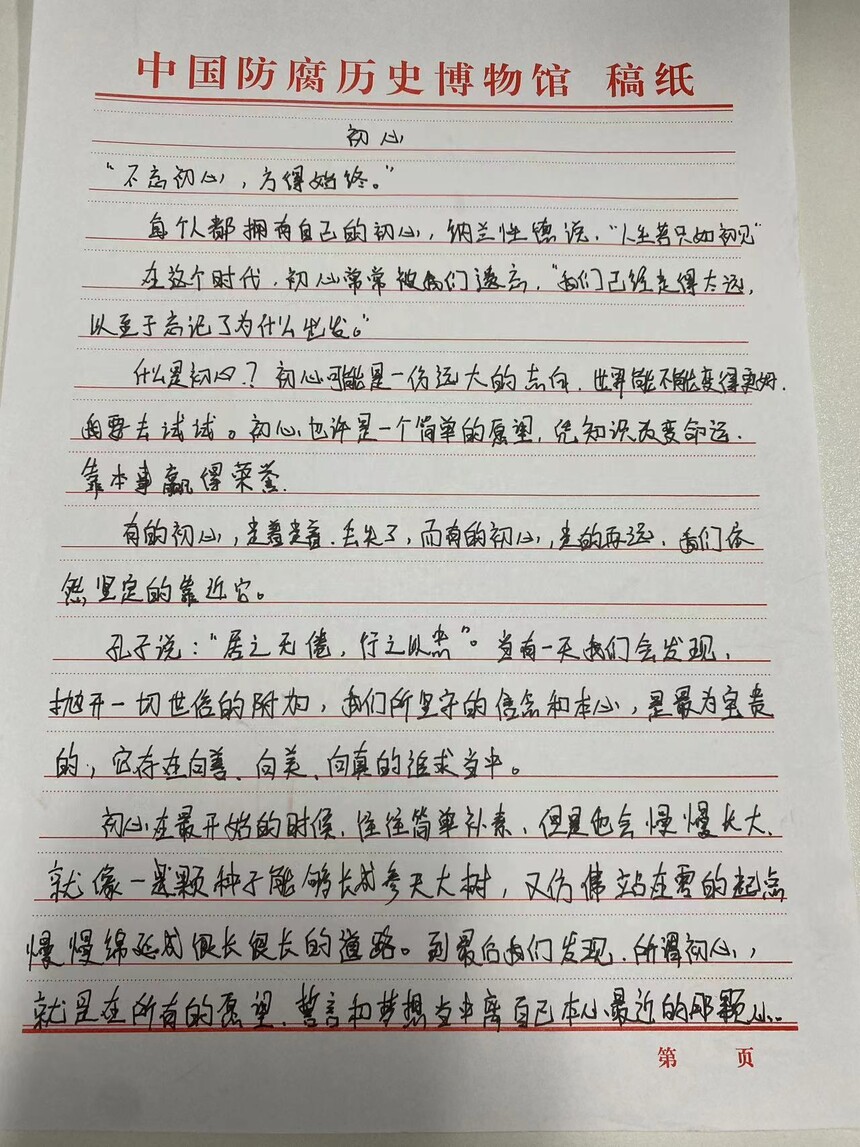 中国防腐历史博物馆 稿纸
初心
“不忘初心，方得始终。”
每个人都拥有自己的初心，纳兰性德说，“人生若只如初见”
在这个时代，初心常常被我们遗忘，“我们已经走得太远，
以至于忘记了为什么出发。”
什么是初心？初心可能是一份远大的志向，世界能不能变得更好，
我要去试试。初心也许是一个简单的愿望，凭知识改变命运，
靠本事赢得荣誉.
有的初心，走着走着，丢失了，而有的初心，走的再远，我们依
然坚定的靠近它。
孔子说：“居之无倦，行之以忠”。当有一天我们会发现，
抛开一切世俗的附加，我们所坚守的信念和本心，是最为宝贵
的，它存在向善、向美、向真的追求当中。
初心在最开始的时候，往往简单朴素，但是他会慢慢长大，
就像一颗种子能够长成参天大树，又仿佛站在零的起点
慢慢绵延成很长很长的道路。到最后我们发现，所谓初心，
就是在所有的愿望、誓言和梦想当中离自己本心最近的那颗心..
第 页